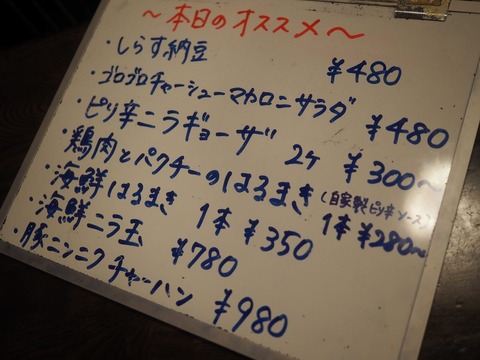 ～本日のオススメ～
・しらす納豆 ¥480
・ゴロゴロチャーシューマカロニサラダ ¥480
・ピリ辛ニラギョーザ 2ヶ ¥300～
・鶏肉とパクチーのはるまき(自家製ピリ辛ソース) 1本¥280～
・海鮮はるまき 1本¥350
・海鮮ニラ玉 ¥780
・豚ニンニクチャーハン ¥980